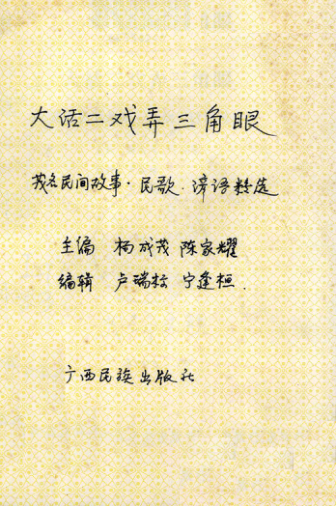 大话二戏弄三角眼
茂名民间故事·民歌·谚语精选
主编 杨成茂 陈家耀
编辑 卢瑞松 宁逢桓
广西民族出版社